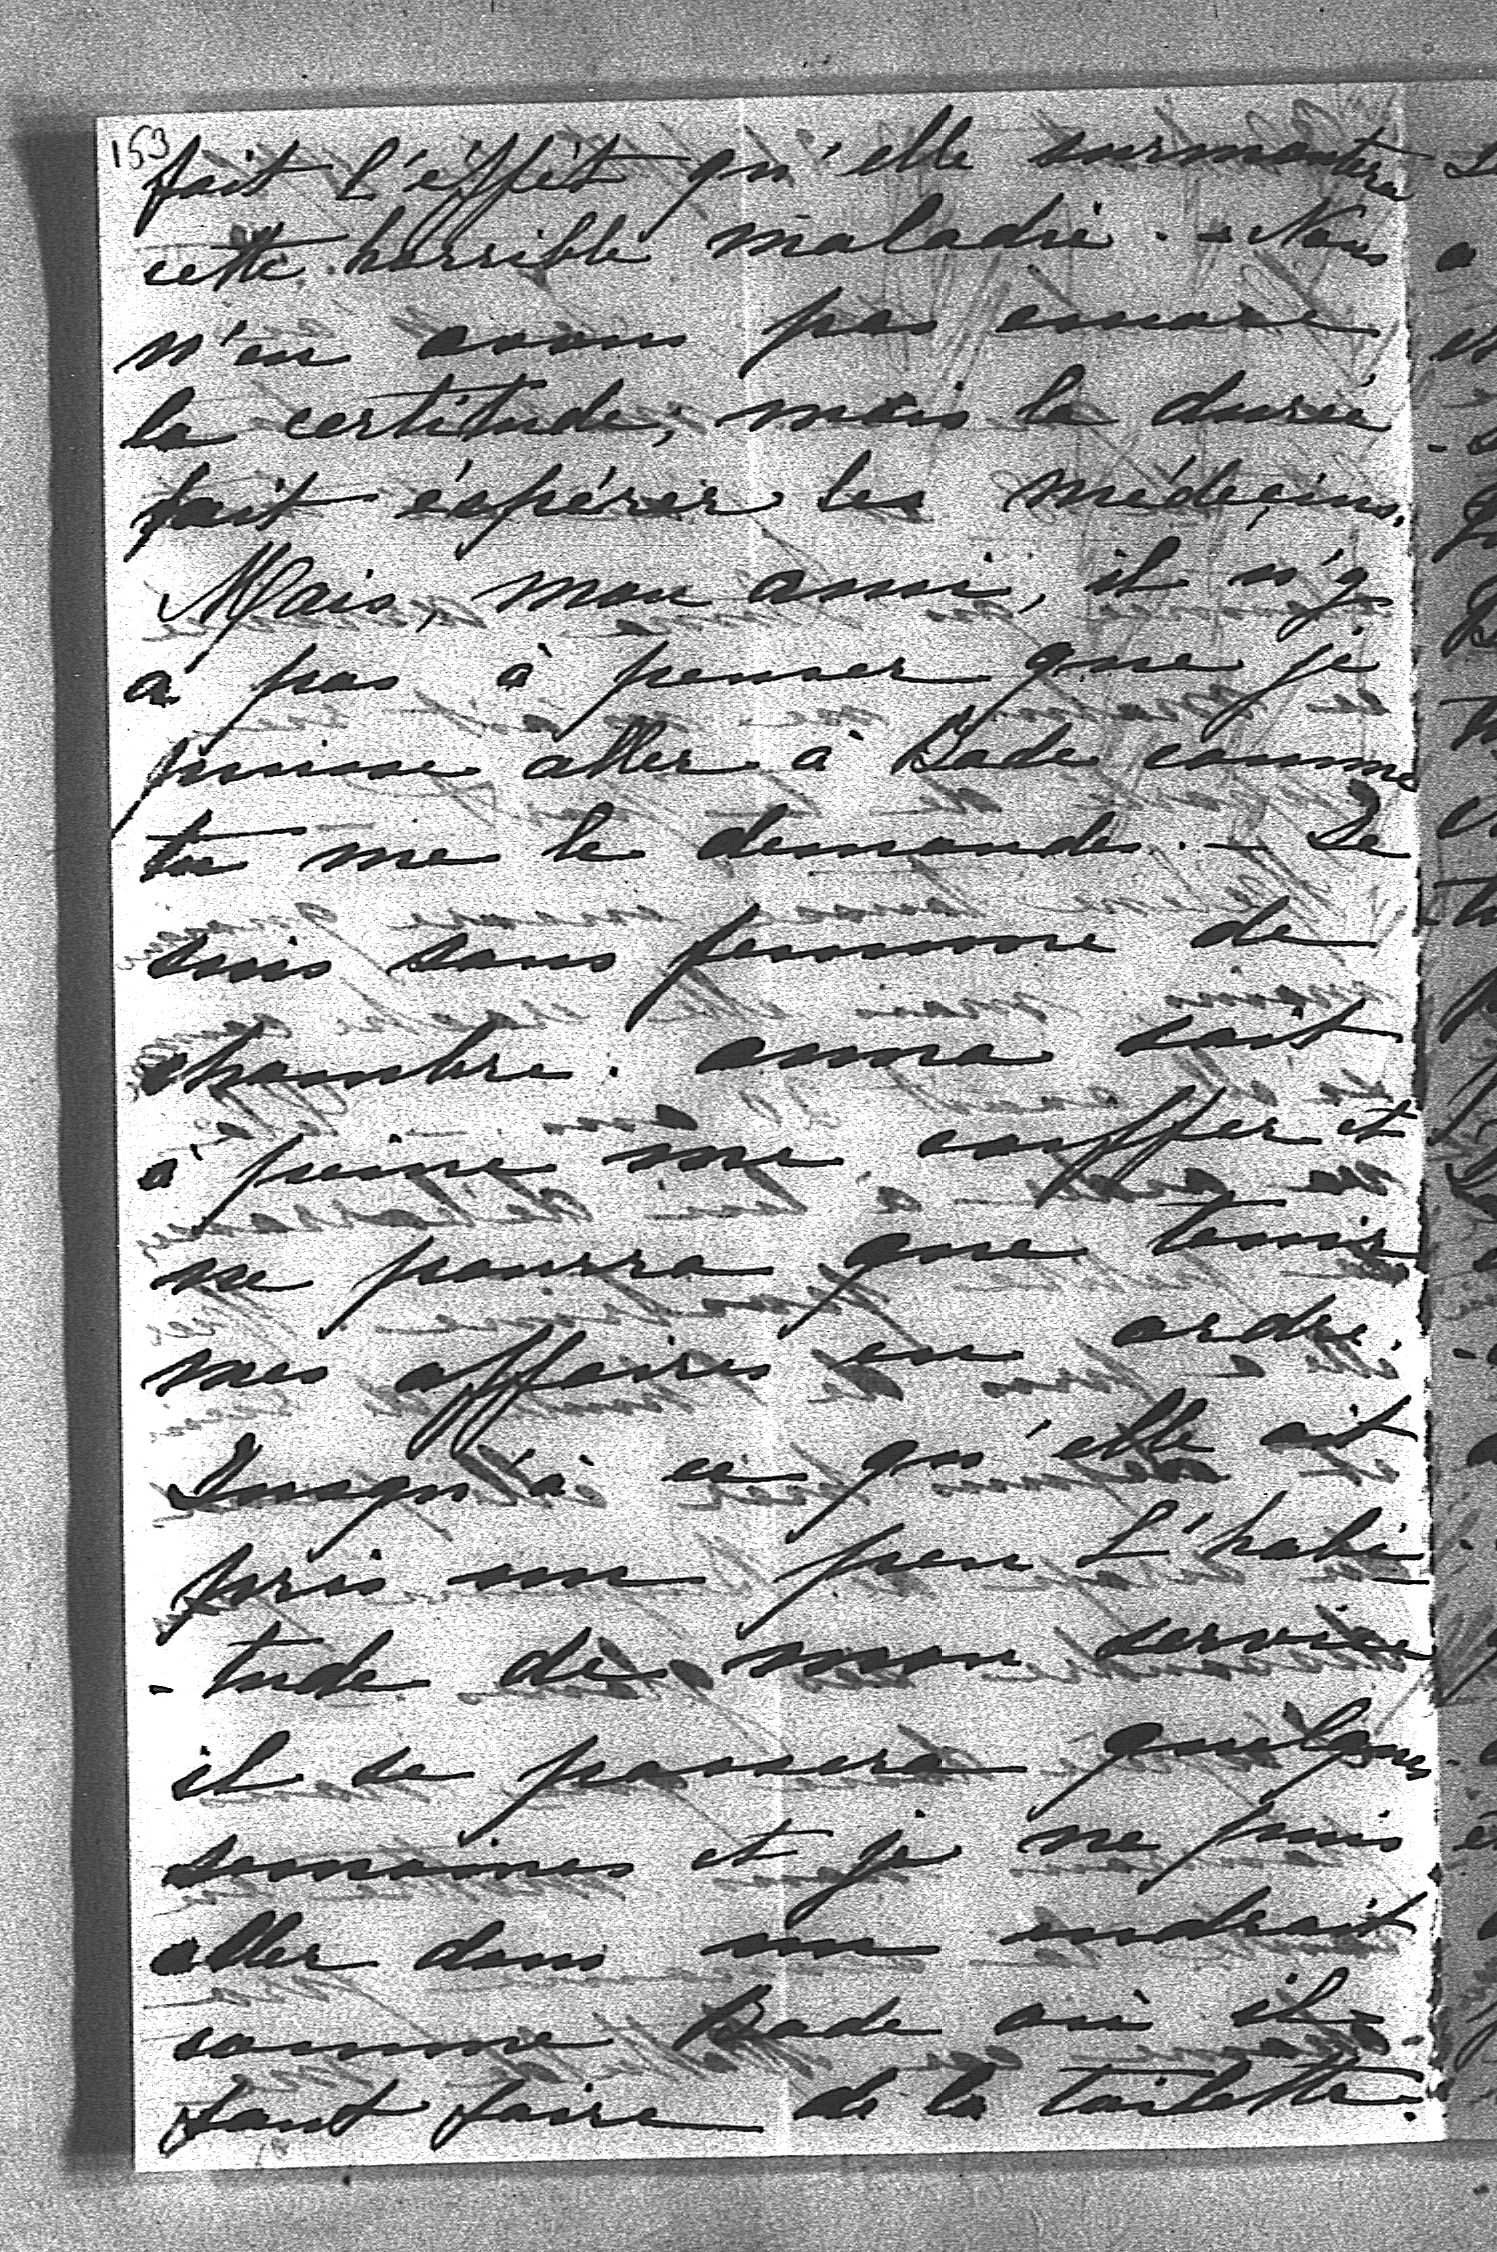 153
fait l'éffèt qu'elle surmontera
cette horrible maladie. - Nous
n'en avons pas encore
la certitude, mais la durée
fait éspérer les médeçins.
Mais, mon ami, il n'y
a pas à penser que je
puisse aller à Bade comme
tu me le demandes. - Je
suis sans femme de
chambre. Anna sait
à peine me coiffer et
ne pourra que tenir
mes affaires en ordre.
Jusqu'à ce qu'elle ait
pris un peu l'habi-
- tude de mon service
il se passera quelques
semaines et je ne puis
aller dans un endroit
comme Bade où il
faut faire de la toilette.